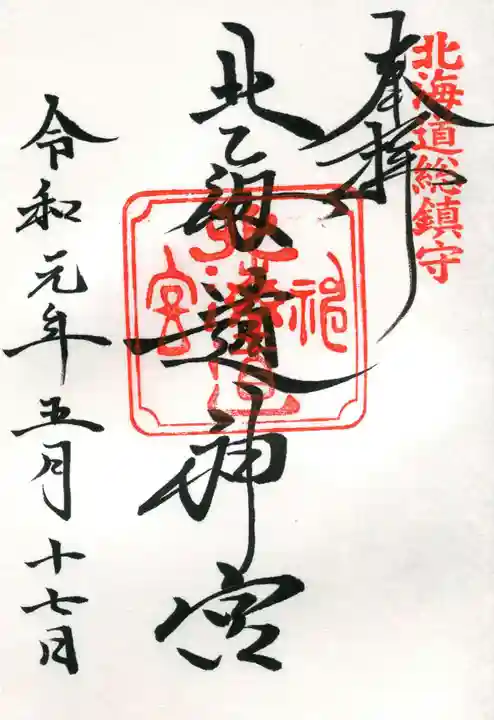 北海道総鎮守
奉拝
北海道神宮
北海道神宮
令和元年五月十七日